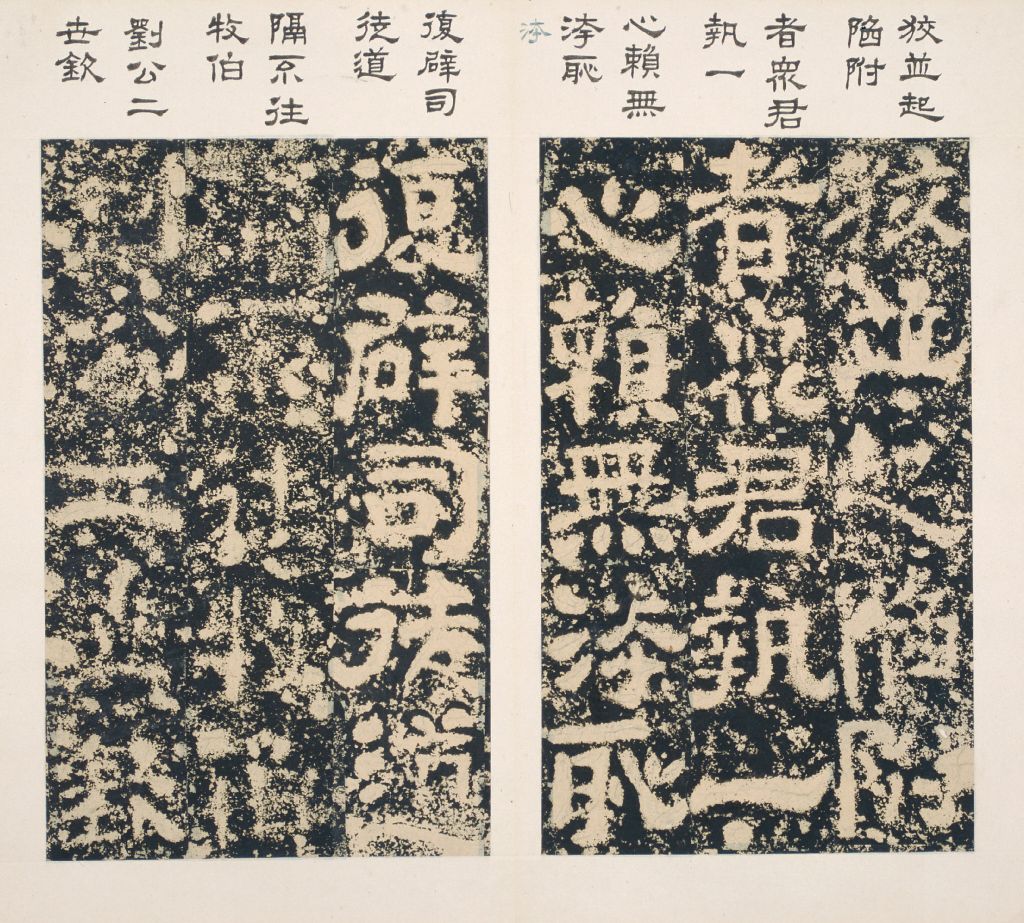 狡並起
陷附
者眾君
執一
心賴無
洿恥
洿
復辟司
徒道
隔不往
牧伯
劉公二
世欽
狡並起陷附
者眾君執一
心賴無洿恥
復辟司徒道